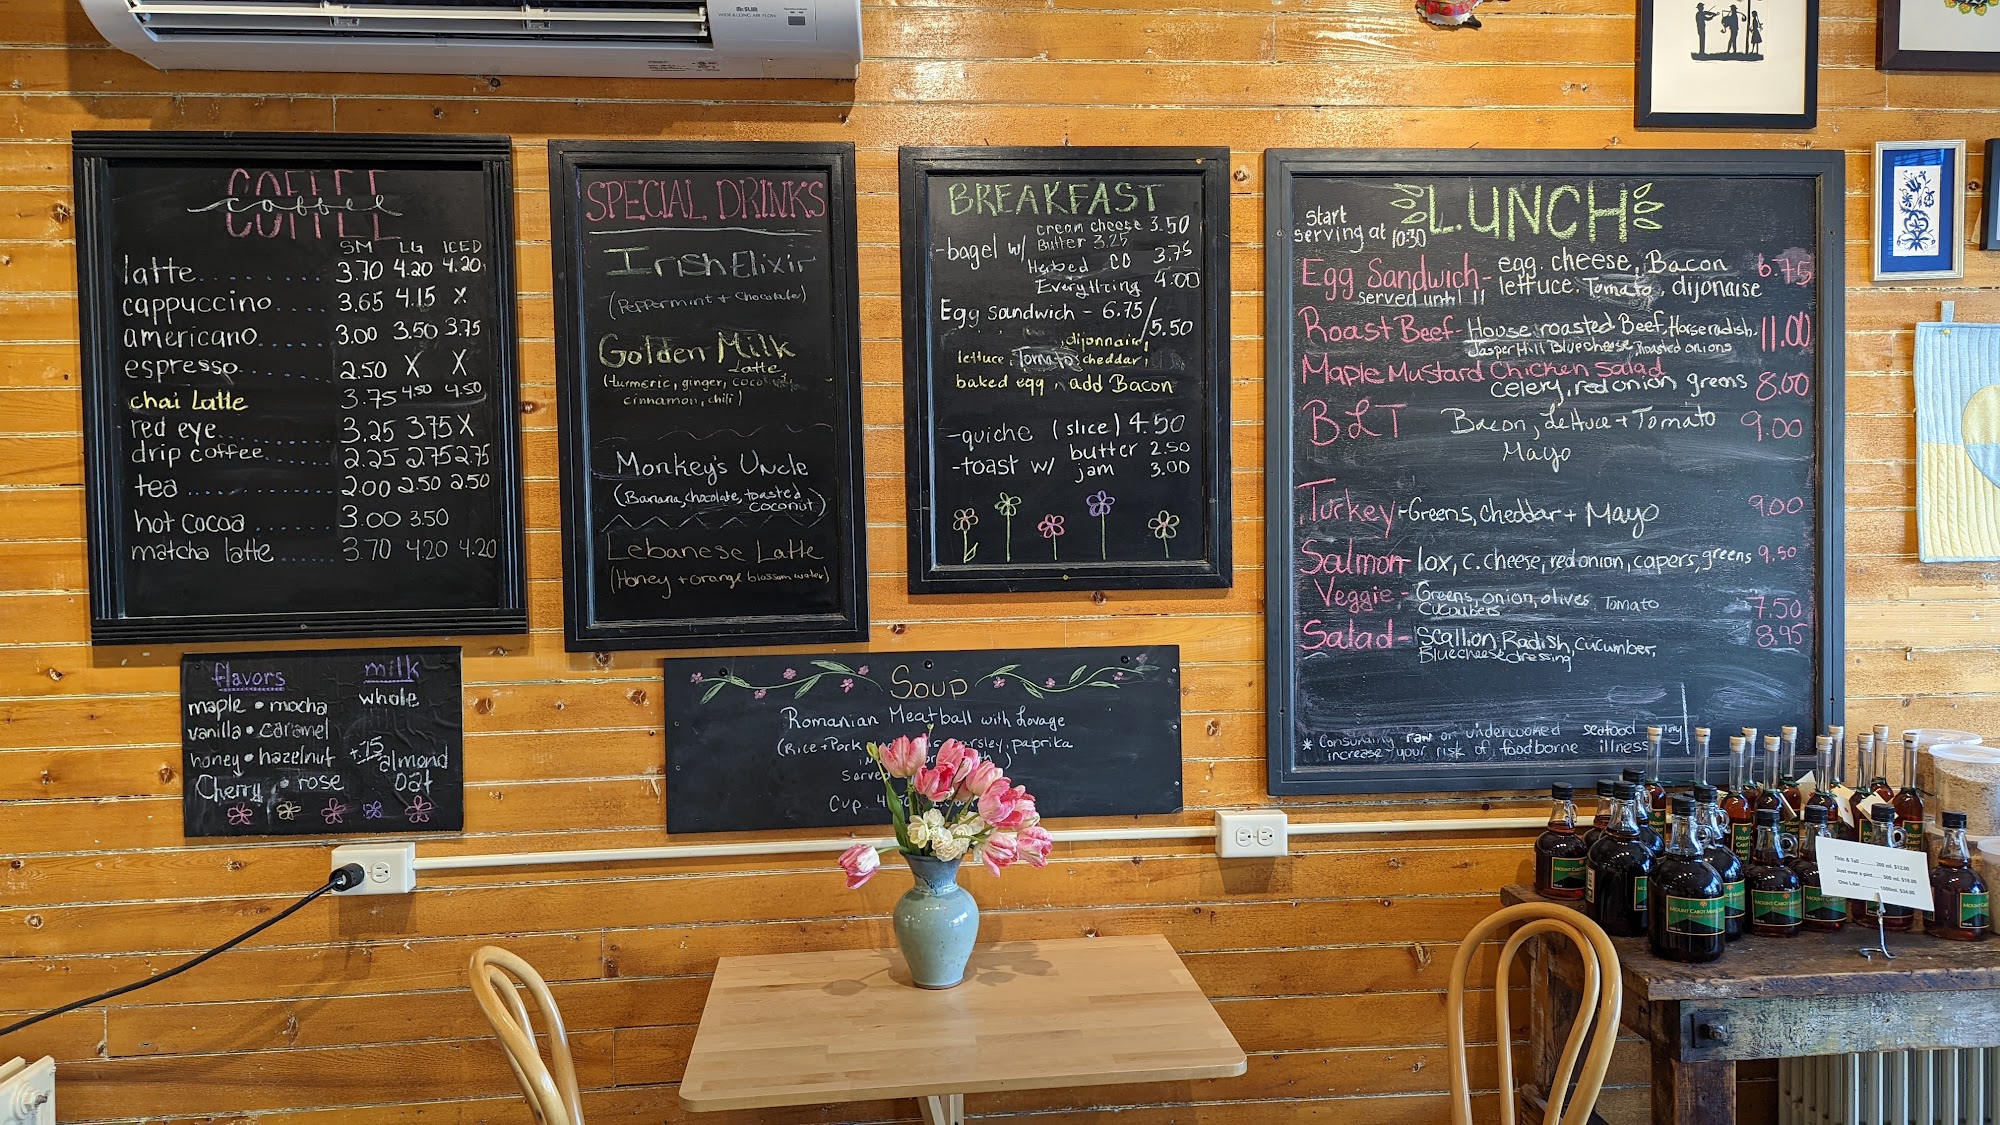 Mr.SLIM
WIDE & LONG AIR FLOW
COFFEE
coffee
COFFEE
SM LG ICED
latte........ 3.70 4.20 4.20
cappuccino.... 3.65 4.15 x
americano..... 3.00 3.50 3.75
espresso...... 2.50 X X
chai Latte 3.75 4.50 4.50
red eye....... 3.25 3.75 X
drip coffee....... 2.25 2.75 2.75
tea ............ 2.00 2.50 2.50
hot cocoa ....... 3.00 3.50
matcha latte..... 3.70 4.20 4.20
flavors
maple • mocha
vanilla • caramel
honey • hazelnut
Cherry • rose
milk
whole
+.75
almond
oat
SPECIAL DRINKS
Irish Elixir
(Peppermint + Chocolate)
Golden Milk
Latte
(turmeric, ginger,
cinnamon, chili)
Monkey's Uncle
(Banana, chocolate, toasted
coconut)
Lebanese Latte
(Honey + orange blossom water)
BREAKFAST
cream cheese 3.50
-bagel w/ Butter 3.25
Herbed CC 3.75
Everything 4.00
Egg Sandwich - 6.75/
5.50
dijonnaise,
lettuce, Tomato, cheddar,
baked egg, add Bacon
-quiche (slice) 4.50
-toast w/ butter 2.50
jam 3.00
Soup
Romanian Meatball with Lovage
(Rice + Pork paprika
Served
Cup
LUNCH
Start
serving at 10:30
Egg Sandwich - egg, cheese, Bacon 6.75
served until 11 lettuce, Tomato, dijonaise
Roast Beef - House roasted Beef, Horseradish, 11.00
Jasper Hill Blue cheese, Roasted onions
Maple Mustard Chicken Salad
celery, red onion greens 8.00
BLT Bacon, Lettuce + Tomato 9.00
Mayo
Turkey - Greens, Cheddar + Mayo 9.00
Salmon - lox, c. cheese, red onion, capers, greens 9.50
Veggie - Greens, onion, olives, Tomato 7.50
Cucumbers
Salad - Scallion, Radish, Cucumber, 8.95
Blue cheese dressing
* Consuming raw or undercooked seafood may
increase your risk of foodborne illness
Thin & Tall ........ 200 ml. $12.00
Just over a pint...... 500 ml. $18.00
One Liter ........ 1000ml. $34.00
MOUNT CABOT MAPLE